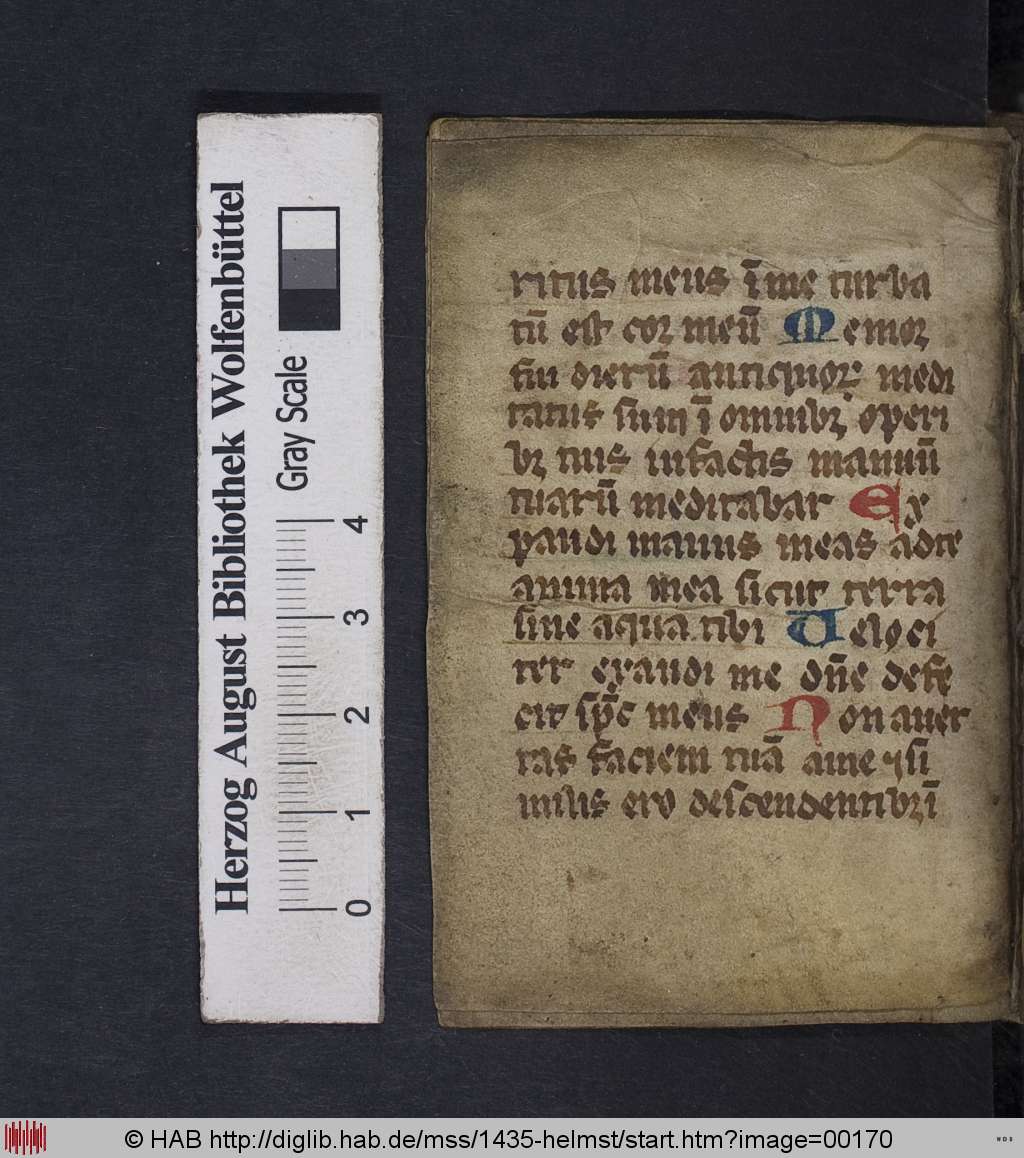 Herzog August Bibliothek Wolfenbüttel
Gray Scale
0 1 2 3 4
ritus meus ī me turba
tū est cor meū Memor
fui dierū antiquoꝝ medi
tatus sum ī omnibꝫ operi
bꝫ tuis in factis manuū
tuarū meditabar Ex
pandi manus meas ad te
anima mea sicut terra
sine aqua tibi Ueloci
ter exaudi me dn̄e defe
cit sp̄c meus Non auer
tas faciem tuā a me ⁊ si
milis ero descendentibꝫ ī
© HAB http://diglib.hab.de/mss/1435-helmst/start.htm?image=00170